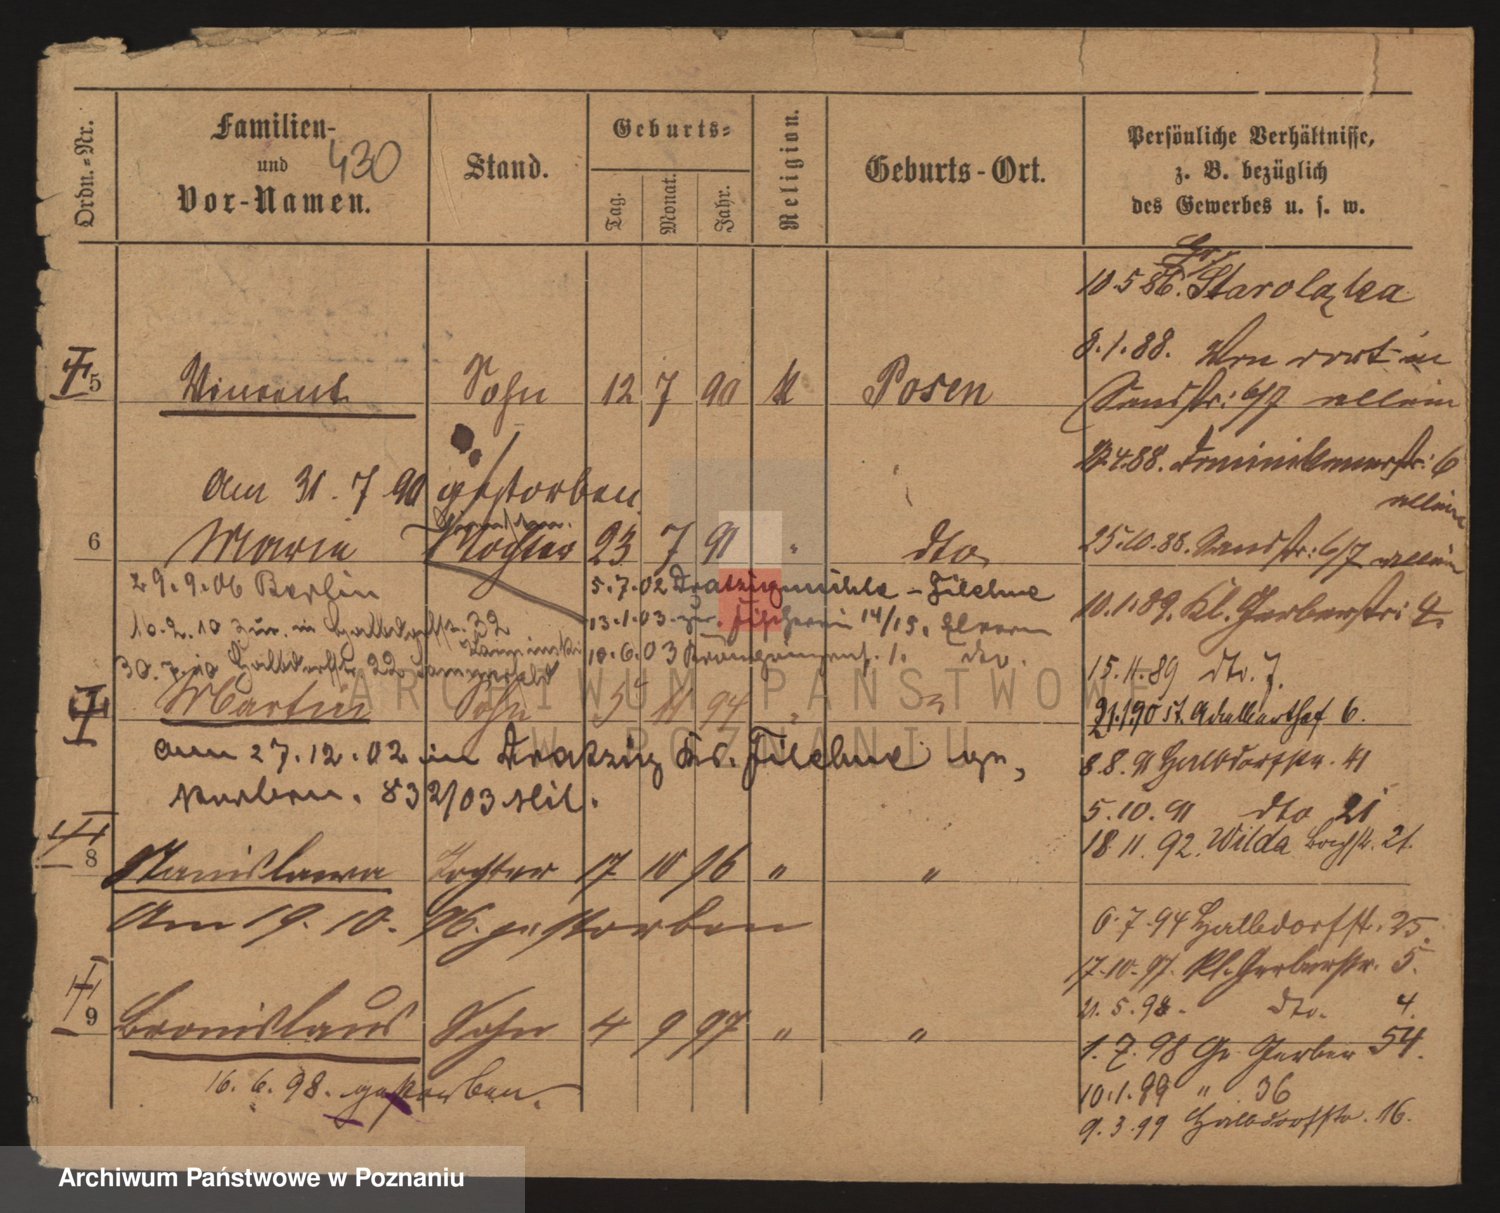 Ordn.-Nr.
Familien-
und
Vor-Namen.
430
Stand.
Geburts-
Tag.
Monat.
Jahr.
Religion.
Geburts-Ort.
Persönliche Verhältnisse,
z. B. bezüglich
des Gewerbes u. s. w.
10.5 86. Starolęka
8.1.88. Von dort in
5 Vincent Sohn 12 7 90 k Posen
Sandstr: 6/7 allein
4.88. Dominikanerstr: 6
allein
Am 31.7 90 gestorben
6 Maria Tochter 23 7 91 " dto
25.10.88. Sandstr: 6/7 allein
29.9.06 Berlin
5.7.02 Dratzigmühle - Filehne
10.1.89. Kl. Gerberstr: 4
16.2.10 zur. in Halbdorfstr. 32
13.1.03 zur. Fischerei 14/15.
30. 7. 10 Halbdorfstr 22
10.6.03 1. dto.
15.11.89 dto. 7.
Martin Sohn 5 11 94 " "
21.1.90 St. Adalberthof 6.
am 27.12.02 in Dratzig Kr. Filehne ge-
storben. 832/03 Mil.
8.8.91 Halbdorfstr. 41
5.10.91 dto 21
18 11. 92. Wilda Bachstr. 21.
8 Stanislawa Tochter 17 10 96 " "
Am 19.10.96. gestorben
6.7.94 Halbdorfstr. 25.
17.10.97. Kl. Gerberstr. 5.
5.98. dto. 4.
9 Bronislaus Sohn 4 9 97 " "
1.7.98 Gr. Gerber 54.
16.6.98. gestorben.
10.1.99 " 36
9.3.99 Halbdorfstr. 16.
ARCHIWUM PAŃSTWOWE
W POZNANIU
Archiwum Państwowe w Poznaniu